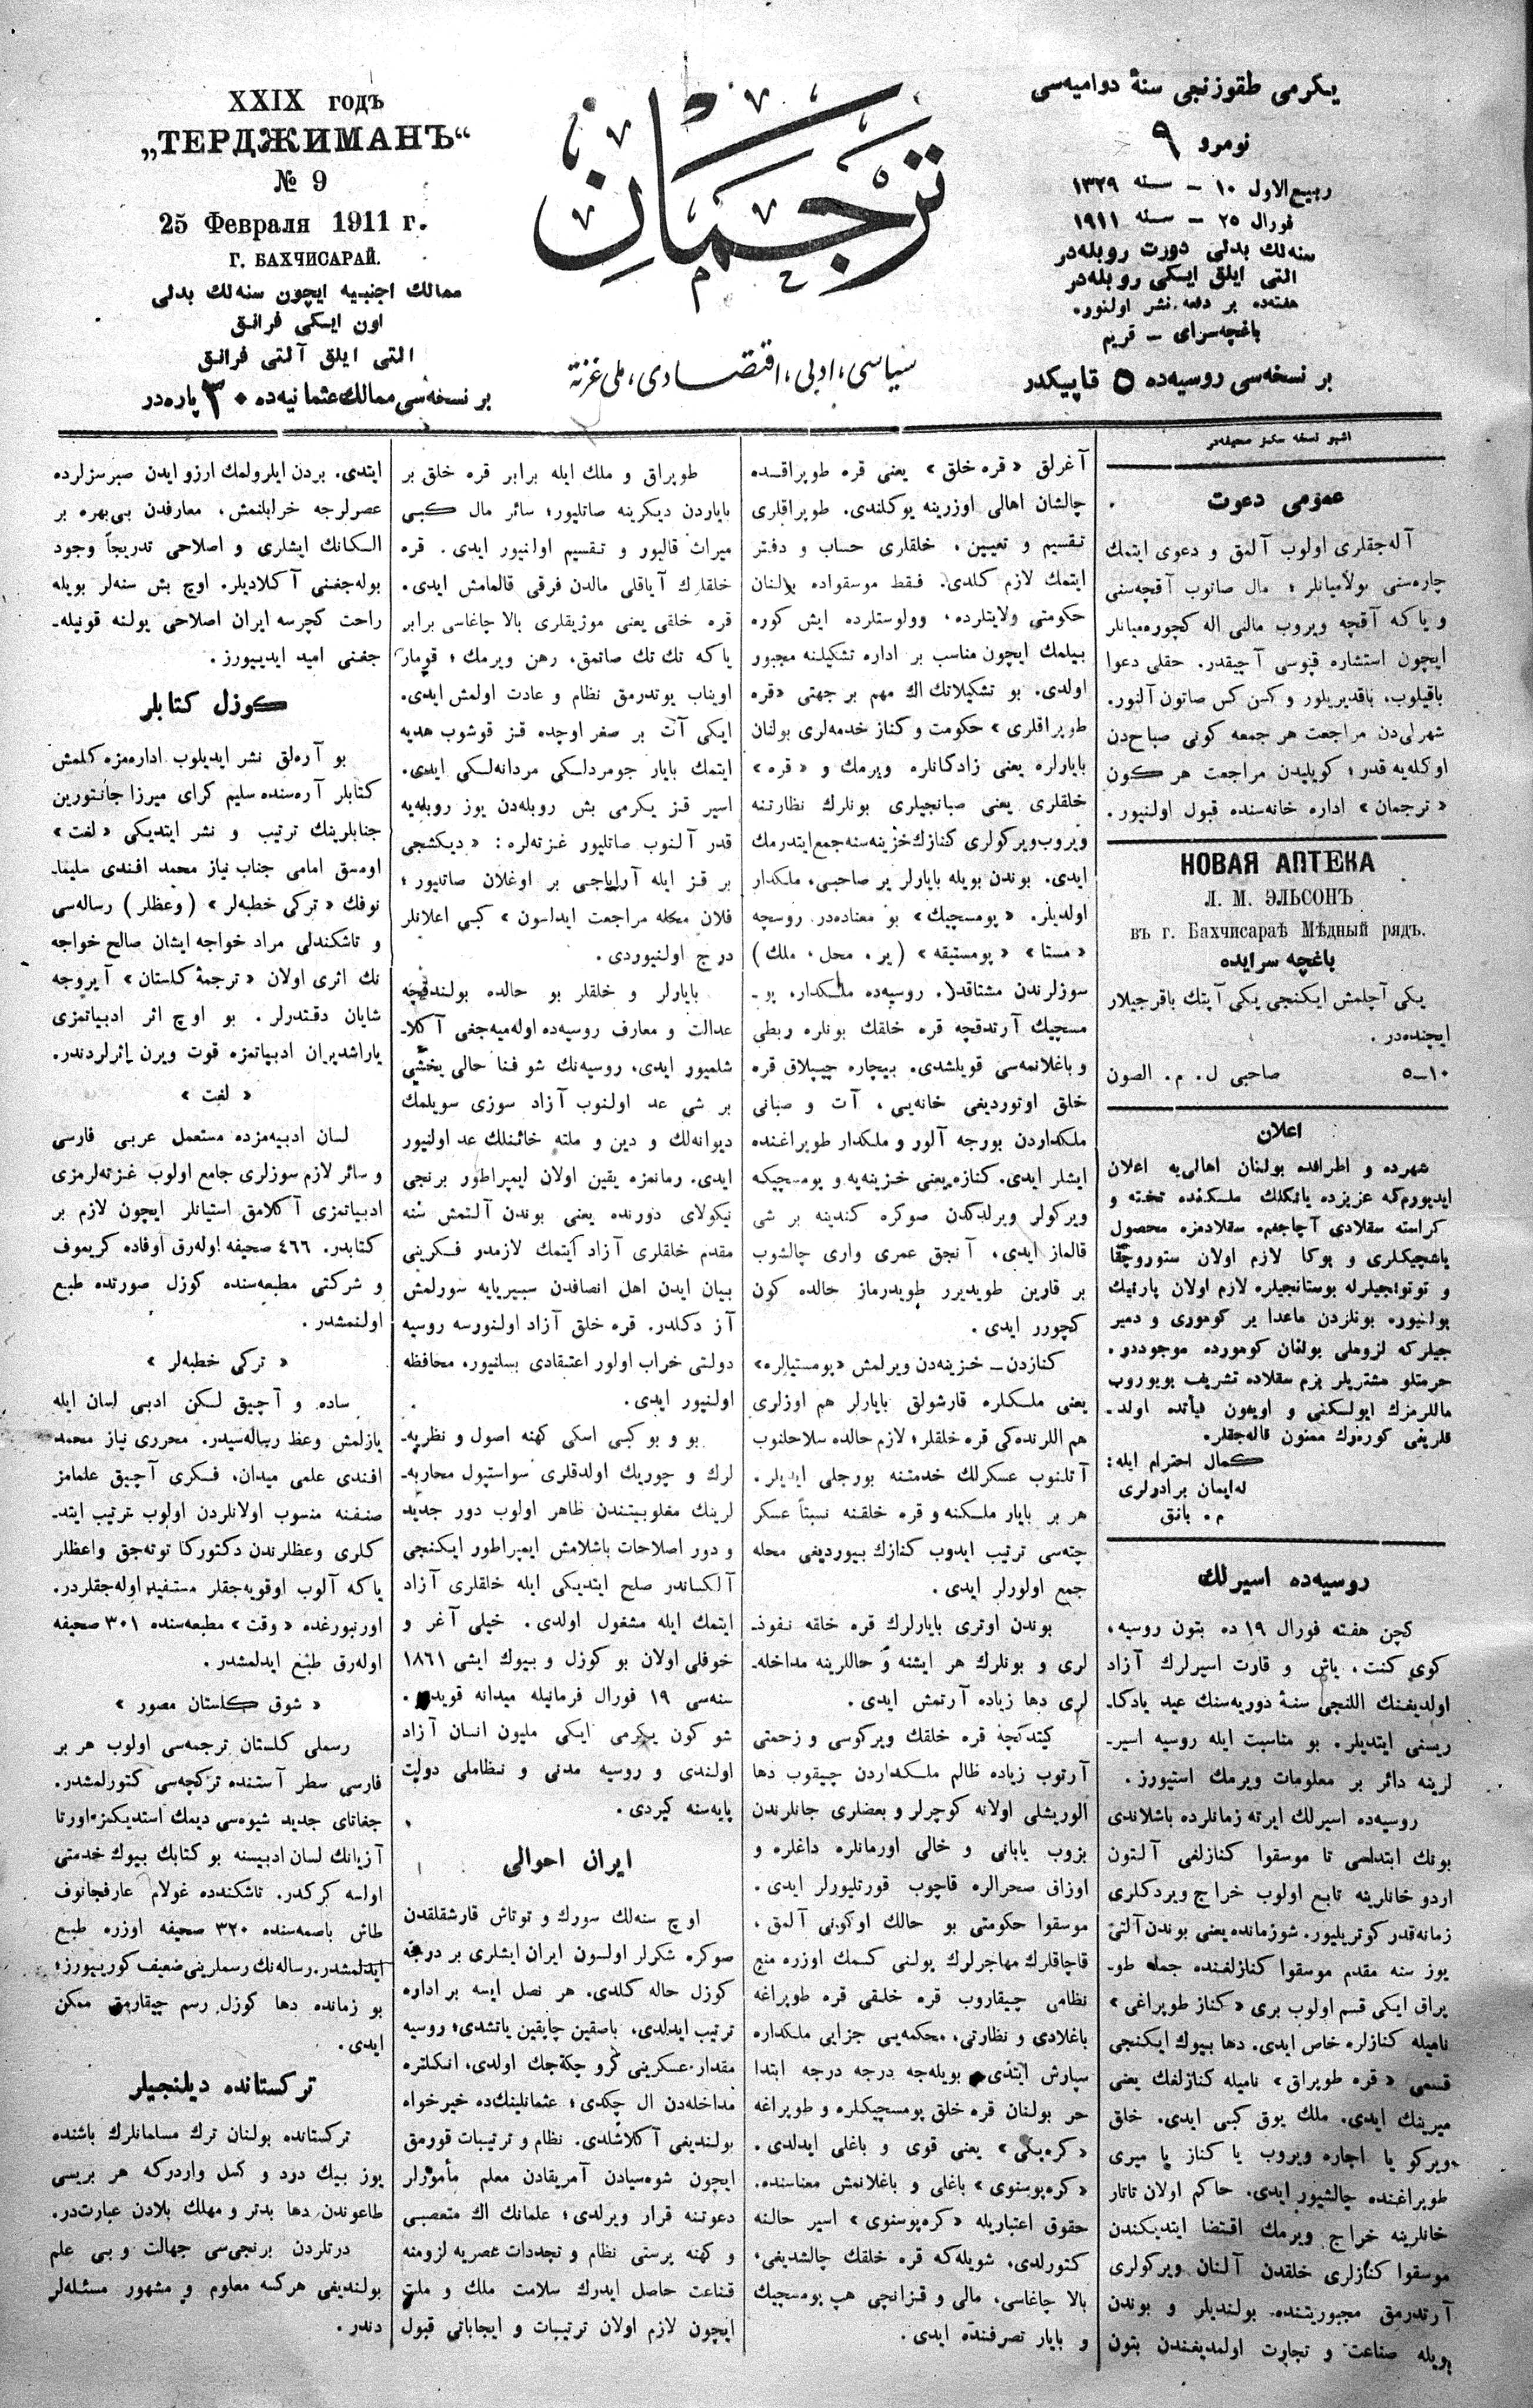 یكرمی طقوزنجی سنۀ دوامیه‌سی
نومرو ٩
ربیع الاول ١٠ — سنه ١٣٢٩
فورال ٢٥ — سنه ١٩١١
سنه‌لك بدلی دورت روبله‌در
التی ایلق ایكی روبله‌در
هفته‌ده بر دفعه نشر اولنور.
باغچه‌سرای — قریم
بر نسخه‌سی روسیه‌ده ٥ قاپیكدر
ترجمان
سیاسی، ادبی، اقتصادی، ملی غزته
XXIX годъ
„ТЕРДЖИМАНЪ“
№ 9
25 Февраля 1911 г.
Г. БАХЧИСАРАЙ.
ممالك اجنبیه ایچون سنه‌لك بدلی
اون ایكی فرانق
التی ایلق آلتی فرانق
بر نسخه‌سی ممالك عثمانیه‌ده ٣٠ پاره‌در
اشبو نسخه سكز صحیفه‌در
عمومی دعوت
آله‌جقلری اولوب آلمق و دعوی ایتمك
چاره‌سنی بولامیانلر ؛ مال صاتوب آقچه‌سنی
و یاكه آقچه ویروب مالنی اله كچوره‌میانلر
ایچون استشاره قپوسی آچیقدر. حقلی دعوا
باقیلوب، باقدیریلور و كسن كس صاتون آلنور.
شهرلی‌دن مراجعت هر جمعه كونی صباح‌دن
اوكله‌یه قدر ؛ كویلیدن مراجعت هر كون
« ترجمان » اداره خانه‌سنده قبول اولنیور.
НОВАЯ АПТЕКА
Л. М. ЭЛЬСОНЪ
въ г. Бахчисараѣ Мѣдный рядъ.
باغچه سرایده
یكی آچلمش ایكنجی یكی آپتك باقرجیلار
ایچنده‌در .
١٠—٥ صاحبی ل. م. الصون
اعلان
شهرده و اطرافده بولنان اهالی‌یه اعلان
ایدیورم‌كه عزیزده یانكلك ملسكنده تخته و
كراسته سقلادی آچاجغم. سقلادمزه محصول
یاشچیكلری و بوكا لازم اولان ستوروچقا
و توتونجیلرله بوستانجیلره لازم اولان پارنیك
بولنیور. بونلردن ماعدا یر كوموری و دمیر
جیلركه لزوملی بولنان كومورده موجوددر.
حرمتلو مشتریلر بزم سقلاده تشریف بویوروب
ماللرمزك ایولكنی و اویغون فیأتده اولد-
قلرینی كوره‌رك ممنون قاله‌جقلر.
كمال احترام ایله:
له‌ایمان برادرلری
م. بانق
روسیه‌ده اسیرلك
كچن هفته فورال ١٩ ده بتون روسیه،
كوی كنت، یاش و قارت اسیرلرك آزاد
اولدیغنك اللنجی سنۀ دوریه‌سنك عید یادكا-
ریسنی ایتدیلر. بو مناسبت ایله روسیه اسیر-
لرینه دائر بر معلومات ویرمك استیورز .
روسیه‌ده اسیرلك ایرته زمانلرده باشلاندی
بونك ابتداسی تا موسقوا كنازلغی آلتون
اردو خانلرینه تابع اولوب خراج ویردكلری
زمانه‌قدر كوتریلیور. شو زمانده یعنی بوندن آلتی
یوز سنه مقدم موسقوا كنازلغنده جمله طو-
پراق ایكی قسم اولوب بری « كناز طوپراغی »
نامیله كنازلره خاص ایدی. دها بیوك ایكنجی
قسمی « قره طوپراق » نامیله كنازلغك یعنی
میرینك ایدی. ملك یوق كبی ایدی. خلق
ویركو یا اجاره ویروب یا كناز یا میری
طوپراغنده چالشیور ایدی. حاكم اولان تاتار
خانلرینه خراج ویرمك اقتضا ایتدیكندن
موسقوا كنازلری خلقدن آلنان ویركولری
آرتدرمق مجبوریتنده بولندیلر و بوندن
بویله صناعت و تجارت اولمدیغندن بتون
آغرلق « قره خلق » یعنی قره طوپراقده
چالشان اهالی اوزرینه یوكلندی. طوپراقلری
تقسیم و تعیین، خلقلری حساب و دفتر
ایتمك لازم كلدی. فقط موسقواده بولنان
حكومتی ولایتلرده، وولوستلرده ایش كوره
بیلمك ایچون مناسب بر اداره تشكیلنه مجبور
اولدی. بو تشكیلاتك اك مهم بر جهتی «قره
طوپراقلری » حكومت و كناز خدمه‌لری بولنان
بایارلره یعنی زادكانلره ویرمك و « قره »
خلقلری یعنی صبانجیلری بونلرك نظارتنه
ویروب ویركولری كنازك خزینه‌سنه جمع ایتدرمك
ایدی. بوندن بویله بایارلر یر صاحبی، ملكدار
اولدیلر. « پومسچیك » بو معناده‌در. روسچه
« مستا » « پومستیقه » ( یر ، محل ، ملك )
سوزلرندن مشتاقدر. روسیه‌ده ملكدار، پو-
مسچیك آرتدقچه قره خلقك بونلره ربطی
و باغلانمه‌سی قویلشدی. بیچاره چیپلاق قره
خلق اوتوردیغی خانه‌یی، آت و صبانی
ملكداردن بورجه آلور و ملكدار طوپراغنده
ایشلر ایدی. كنازه یعنی خزینه‌یه و پومسچیكه
ویركولر ویرلدكدن صوكره كندینه بر شی
قالماز ایدی، آنجق عمری واری چالشوب
بر قارین طویدیرر طویدرماز حالده كون
كچورر ایدی .
كنازدن — خزینه‌دن ویرلمش «پومستیالره»
یعنی ملكلره قارشولق بایارلر هم اوزلری
هم اللرنده‌كی قره خلقلر، لازم حالده سلاحلنوب
آتلنوب عسكرلك خدمتنه بورجلی ایدیلر.
هر بر بایار ملكنه و قره خلقنه نسبتاً عسكر
چته‌سی ترتیب ایدوب كنازك بیوردیغی محله
جمع اولورلر ایدی .
بوندن اوتری بایارلرك قره خلقه نفوذ-
لری و بونلرك هر ایشنه و حاللرینه مداخله-
لری دها زیاده آرتمش ایدی .
كیتدكچه قره خلقك ویركوسی و زحمتی
آرتوب زیاده ظالم ملكداردن چیقوب دها
الوریشلی اولانه كوچرلر و بعضلری جانلرندن
بزوب یابانی و خالی اورمانلره داغلره و
اوزاق صحرالره قاچوب قورتلیورلر ایدی .
موسقوا حكومتی بو حالك اوكونی آلمق،
قاچاقلرك مهاجرلرك یولنی كسمك اوزره منع
نظامی چیقاروب قره خلقی قره طوپراغه
باغلادی و نظارتی، محكمه‌یی جزایی ملكداره
سپارش ایتدی. بویله‌جه درجه درجه ابتدا
حر بولنان قره خلق پومسچیكلره و طوپراغه
« كره‌پكی » یعنی قوی و باغلی ایدلدی .
« كره‌پوسنوی » باغلی و باغلانمش معناسنده.
حقوق اعتباریله « كره‌پوسنوی » اسیر حالنه
كتورلدی. شویله‌كه قره خلقك چالشدیغی،
بالا چاغاسی، مالی و قزانچی هپ پومسچیك
و بایار تصرفنده ایدی .
طوپراق و ملك ایله برابر قره خلق بر
بایاردن دیكرینه صاتلیور؛ سائر مال كبی
میراث قالیور و تقسیم اولنیور ایدی. قره
خلقلرك آیاقلی مالدن فرقی قالمامش ایدی.
قره خلقی یعنی موژیقلری بالا چاغاسی برابر
یاكه تك تك صاتمق، رهن ویرمك ؛ قومار
اویناب یوتدرمق نظام و عادت اولمش ایدی.
ایكی آت بر صغر اوچده قز قوشوب هدیه
ایتمك بایار جومردلكی مردانه‌لكی ایدی.
اسیر قز یكرمی بش روبله‌دن یوز روبله‌یه
قدر آلنوب صاتلیور غزته‌لره : « دیكشجی
بر قز ایله آراباجی بر اوغلان صاتلیور ؛
فلان محله مراجعت ایدلسون » كبی اعلانلر
درج اولنیوردی .
بایارلر و خلقلر بو حالده بولندقچه
عدالت و معارف روسیه‌ده اوله‌میه‌جغی آكلا-
شلمیور ایدی. روسیه‌نك شو فنا حالی یخشی
بر شی عد اولنوب آزاد سوزی سویلمك
دیوانه‌لك و دین و ملته خائنلك عد اولنیور
ایدی. زمانمزه یقین اولان ایمپراطور برنجی
نیكولای دورنده یعنی بوندن آلتمش سنه
مقدم خلقلری آزاد ایتمك لازمدر فكرینی
بیان ایدن اهل انصافدن سیبریایه سورلمش
آز دكلدر. قره خلق آزاد اولنورسه روسیه
دولتی خراب اولور اعتقادی بسلنیور، محافظه
اولنیور ایدی .
بو و بو كبی اسكی كهنه اصول و نظریه-
لرك و چوریك اولدقلری سواستپول محاربه-
لرینك مغلوبیتندن ظاهر اولوب دور جدید
و دور اصلاحات باشلامش ایمپراطور ایكنجی
آلكساندر صلح ایتدیكی ایله خلقلری آزاد
ایتمك ایله مشغول اولدی. خیلی آغر و
خوفلی اولان بو كوزل و بیوك ایشی ١٨٦١
سنه‌سی ١٩ فورال فرمانیله میدانه قویدی.
شو كون یكرمی ایكی ملیون انسان آزاد
اولندی و روسیه مدنی و نظاملی دولت
پایه‌سنه كیردی .
ایران احوالی
اوچ سنه‌لك سورك و توتاش قارشقلقدن
صوكره شكرلر اولسون ایران ایشلری بر درجه
كوزل حاله كلدی. هر نصل ایسه بر اداره
ترتیب ایدلدی، باصقین چاپقین یاتشدی؛ روسیه
مقدار عسكرینی كرو چكه‌جك اولدی، انكلتره
مداخله‌دن ال چكدی ؛ عثمانلینك‌ده خیرخواه
بولندیغی آكلاشلدی. نظام و ترتیبات قورمق
ایچون شوه‌سیادن آمریقادن معلم مأمورلر
دعوتنه قرار ویرلدی ؛ علمانك اك متعصبی
و كهنه پرستی نظام و تجددات عصریه لزومنه
قناعت حاصل ایدرك سلامت ملك و ملت
ایچون لازم اولان ترتیبات و ایجاباتی قبول
ایتدی. بردن ایلرولمك ارزو ایدن صبرسزلرده
عصرلرجه خرابلنمش، معارفدن بی‌بهره بر
الكانك ایشلری و اصلاحی تدریجاً وجود
بوله‌جغنی آكلادیلر. اوچ بش سنه‌لر بویله
راحت كچرسه ایران اصلاحی یولنه قونیله-
جغنی امید ایدیورز.
كوزل كتابلر
بو آره‌لق نشر ایدیلوب اداره‌مزه كلمش
كتابلر آره‌سنده سلیم كرای میرزا جانتورین
جنابلرینك ترتیب و نشر ایتدیكی « لغت »
اومسق امامی جناب نیاز محمد افندی سلیما-
نوفك « تركی خطبه‌لر » ( وعظلر ) رساله‌سی
و تاشكندلی مراد خواجه ایشان صالح خواجه
نك اثری اولان « ترجمۀ كلستان » آیروجه
شایان دقتدرلر . بو اوچ اثر ادبیاتمزی
یاراشدیران ادبیاتمزه قوت ویرن اثرلردندر.
« لغت »
لسان ادبیه‌مزده مستعمل عربی فارسی
و سائر لازم سوزلری جامع اولوب غزته‌لرمزی
ادبیاتمزی آكلامق استیانلر ایچون لازم بر
كتابدر. ٤٦٦ صحیفه اوله‌رق اوفاده كریموف
و شركتی مطبعه‌سنده كوزل صورتده طبع
اولنمشدر .
« تركی خطبه‌لر »
ساده و آچیق لكن ادبی لسان ایله
یازلمش وعظ رساله‌سیدر. محرری نیاز محمد
افندی علمی میدان، فكری آچیق علمامز
صنفنه منسوب اولانلردن اولوب ترتیب ایتد-
كلری وعظلرندن دكتوركا توته‌جق واعظلر
یاكه آلوب اوقویه‌جقلر مستفید اوله‌جقلردر.
اورنبورغده « وقت » مطبعه‌سنده ٣٠١ صحیفه
اوله‌رق طبع ایدلمشدر .
« شوق كلستان مصور »
رسملی كلستان ترجمه‌سی اولوب هر بر
فارسی سطر آستنده تركچه‌سی كتورلمشدر.
جغاتای جدید شیوه‌سی دیمك استدیكمز اورتا
آزیانك لسان ادبیسنه بو كتابك بیوك خدمتی
اولسه كركدر. تاشكندده غولام عارفجانوف
طاش باصمه‌سنده ٣٢٠ صحیفه اوزره طبع
ایدلمشدر. رساله‌نك رسملرینی ضعیف كوریورز؛
بو زمانده دها كوزل رسم چیقارمق ممكن
ایدی .
تركستانده دیلنجیلر
تركستانده بولنان ترك مسلمانلرك باشنده
یوز بیك درد و كسل واردركه هر بریسی
طاعوندن دها بدتر و مهلك بلادن عبارت‌در.
دردلردن برنجی‌سی جهالت و بی علم
بولندیغی هركسه معلوم و مشهور مسئله‌لر
دندر .